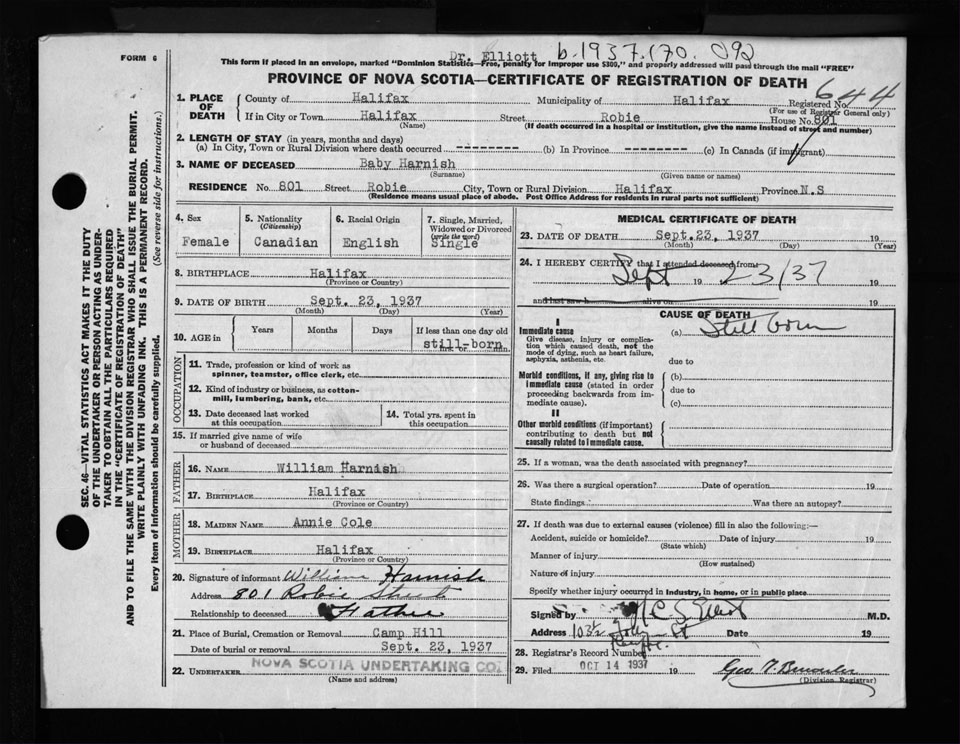 FORM 6
Dr. Elliott b.1937.170.092
This form if placed in an envelope, marked "Dominion Statistics—Free, penalty for improper use $300," and properly addressed will pass through the mail "FREE"
PROVINCE OF NOVA SCOTIA—CERTIFICATE OF REGISTRATION OF DEATH
644
1. PLACE OF DEATH
County of Halifax Municipality of Halifax Registered No.
(For use of Registrar General only)
If in City or Town Halifax Street Robie House No. 801
(Name) (If death occurred in a hospital or institution, give the name instead of street and number)
2. LENGTH OF STAY (in years, months and days)
(a) In City, Town or Rural Division where death occurred --------- (b) In Province --------- (c) In Canada (if immigrant)
3. NAME OF DECEASED Baby Harnish
(Surname) (Given name or names)
RESIDENCE No. 801 Street Robie City, Town or Rural Division Halifax Province N.S
(Residence means usual place of abode. Post Office Address for residents in rural parts not sufficient)
4. Sex
Female
5. Nationality
(Citizenship)
Canadian
6. Racial Origin
English
7. Single, Married, Widowed or Divorced
(write the word)
Single
8. BIRTHPLACE Halifax
(Province or Country)
9. DATE OF BIRTH Sept. 23, 1937
(Month) (Day) (Year)
10. AGE in
Years Months Days If less than one day old
still-born
hrs. or min.
OCCUPATION
11. Trade, profession or kind of work as
spinner, teamster, office clerk, etc.
12. Kind of industry or business, as cotton-
mill, lumbering, bank, etc.
13. Date deceased last worked
at this occupation
14. Total yrs. spent in
this occupation
15. If married give name of wife
or husband of deceased
FATHER
16. NAME William Harnish
17. BIRTHPLACE Halifax
(Province or Country)
MOTHER
18. MAIDEN NAME Annie Cole
19. BIRTHPLACE Halifax
(Province or Country)
20. Signature of informant William Harnish
Address 801 Robie Street
Relationship to deceased Father
21. Place of Burial, Cremation or Removal Camp Hill
Date of burial or removal Sept. 23, 1937
22. UNDERTAKER NOVA SCOTIA UNDERTAKING CO.
(Name and address)
MEDICAL CERTIFICATE OF DEATH
23. DATE OF DEATH Sept.23, 1937 19
(Month) (Day) (Year)
24. I HEREBY CERTIFY that I attended deceased from
Sept 19 23/37
and last saw h alive on 19
CAUSE OF DEATH
I
Immediate cause (a) Still born
Give disease, injury or complica-
tion which caused death, not the
mode of dying, such as heart failure,
asphyxia, asthenia, etc.
due to
Morbid conditions, if any, giving rise to
immediate cause (stated in order
proceeding backwards from im-
mediate cause).
(b)
due to
(c)
II
Other morbid conditions (if important)
contributing to death but not
causally related to immediate cause.
25. If a woman, was the death associated with pregnancy?
26. Was there a surgical operation? Date of operation 19
State findings Was there an autopsy?
27. If death was due to external causes (violence) fill in also the following:—
Accident, suicide or homicide? Date of injury 19
(State which)
Manner of injury
(How sustained)
Nature of injury
Specify whether injury occurred in industry, in home, or in public place
Signed by M.D.
Address 103½ Date 19
28. Registrar's Record Number
29. Filed OCT 14 1937 19
Geo.
(Division Registrar)
SEC. 46—VITAL STATISTICS ACT MAKES IT THE DUTY
OF THE UNDERTAKER OR PERSON ACTING AS UNDER-
TAKER TO OBTAIN ALL THE PARTICULARS REQUIRED
IN THE "CERTIFICATE OF REGISTRATION OF DEATH"
AND TO FILE THE SAME WITH THE DIVISION REGISTRAR WHO SHALL ISSUE THE BURIAL PERMIT.
WRITE PLAINLY WITH UNFADING INK. THIS IS A PERMANENT RECORD.
Every item of information should be carefully supplied. (See reverse side for instructions.)